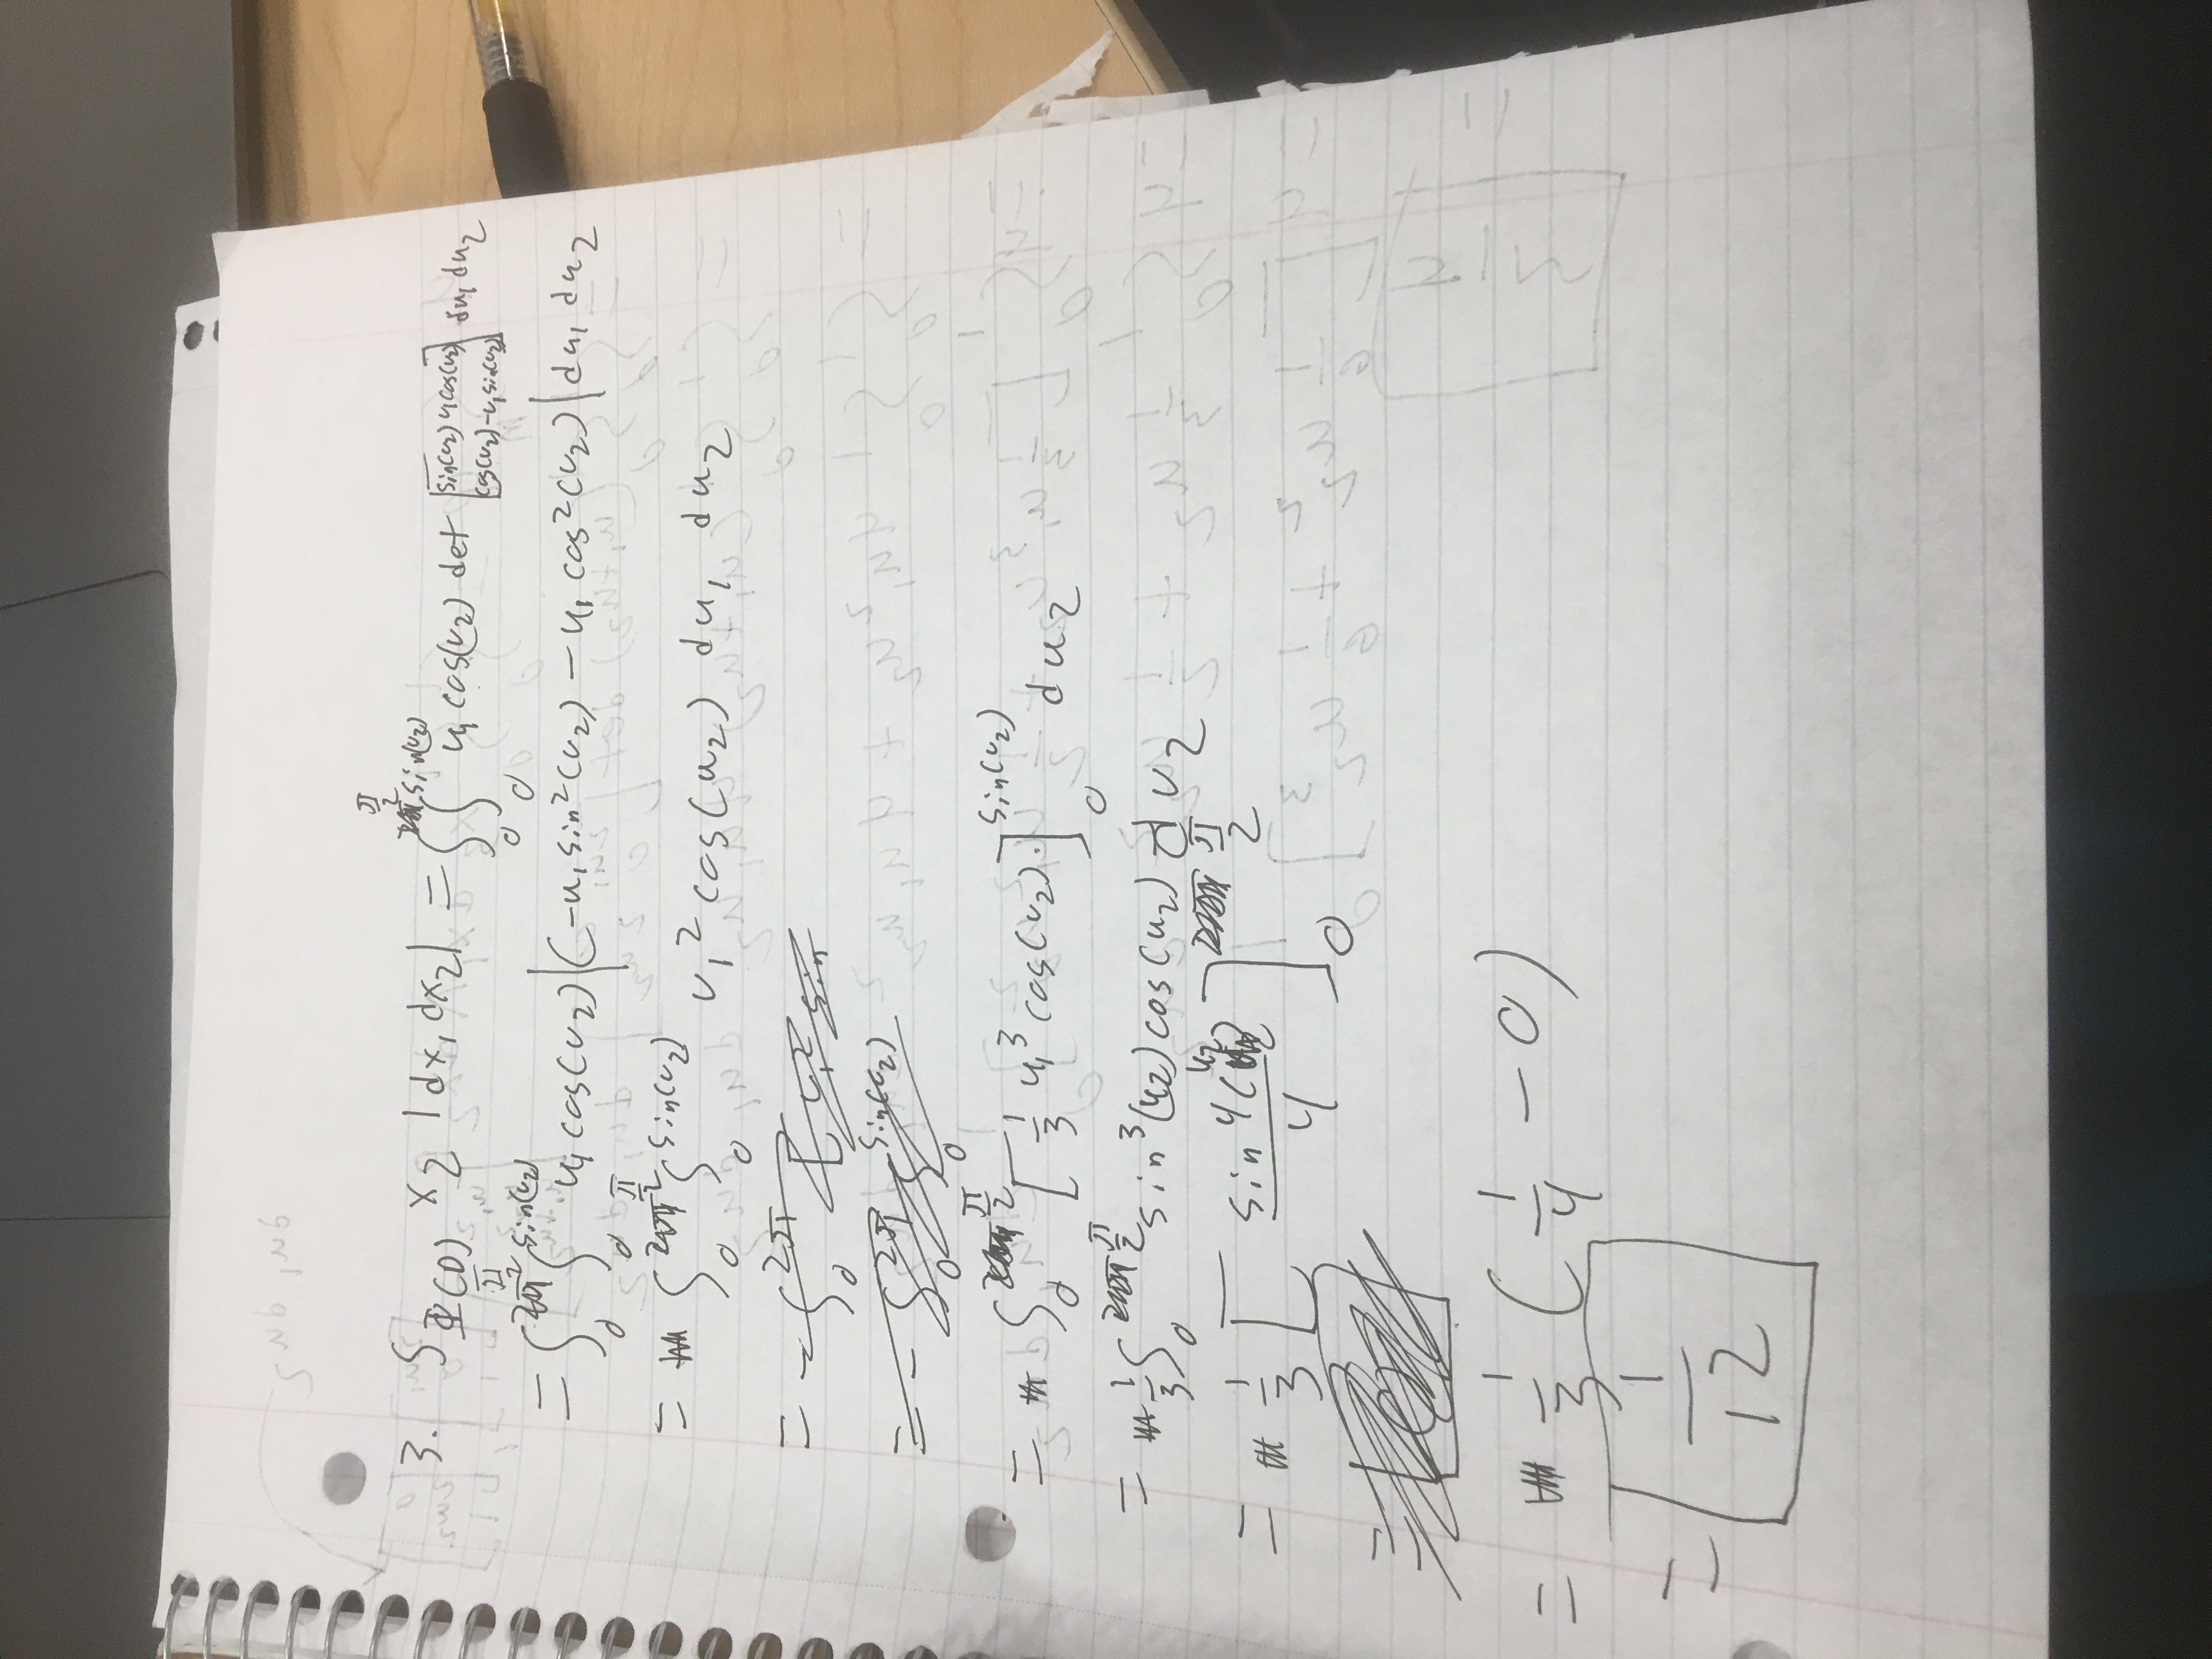 3. ∫_Φ(D) x₂ |dx₁dx₂| = ∫₀^(π/2) ∫₀^sin(u₂) u₁ cos(u₂) det [sin(u₂) u₁cos(u₂) cos(u₂) -u₁sin(u₂)] du₁ du₂
= ∫₀^(π/2) ∫₀^sin(u₂) u₁ cos(u₂) |(-u₁ sin²(u₂) - u₁ cos²(u₂)| du₁ du₂
= ∫₀^(π/2) ∫₀^sin(u₂) u₁² cos(u₂) du₁ du₂
= - ∫₀^2π [ u₁² sin
= - ∫₀^2π ∫₀^sin(u₂)
= ∫₀^(π/2) [ 1/3 u₁³ cos(u₂) ]₀^sin(u₂) du₂
= 1/3 ∫₀^(π/2) sin³(u₂) cos(u₂) du₂
= 1/3 [ sin⁴(u₂)/4 ]₀^(π/2)
= 0
= 1/3 ( 1/4 - 0 )
= 1/12